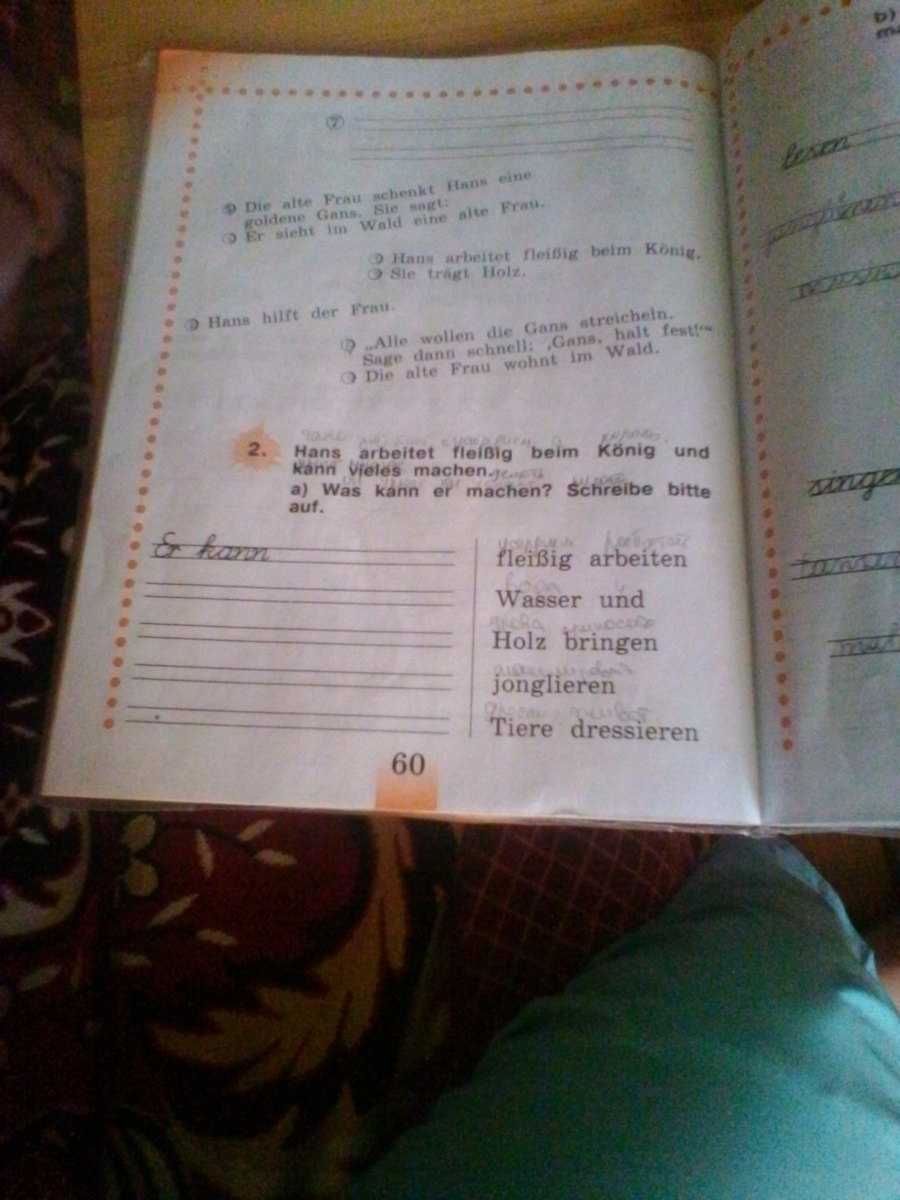 7
Die alte Frau schenkt Hans eine
goldene Gans. Sie sagt:
Er sieht im Wald eine alte Frau.
Hans arbeitet fleißig beim König.
Sie trägt Holz.
Hans hilft der Frau.
„Alle wollen die Gans streicheln.
Sage dann schnell: ‚Gans, halt fest!‘“
Die alte Frau wohnt im Wald.
2. Hans arbeitet fleißig beim König und
kann vieles machen.
a) Was kann er machen? Schreibe bitte
auf.
Er kann
fleißig arbeiten
вода и
Wasser und
дрова
Holz bringen
jonglieren
Tiere dressieren
60
b)
lesen